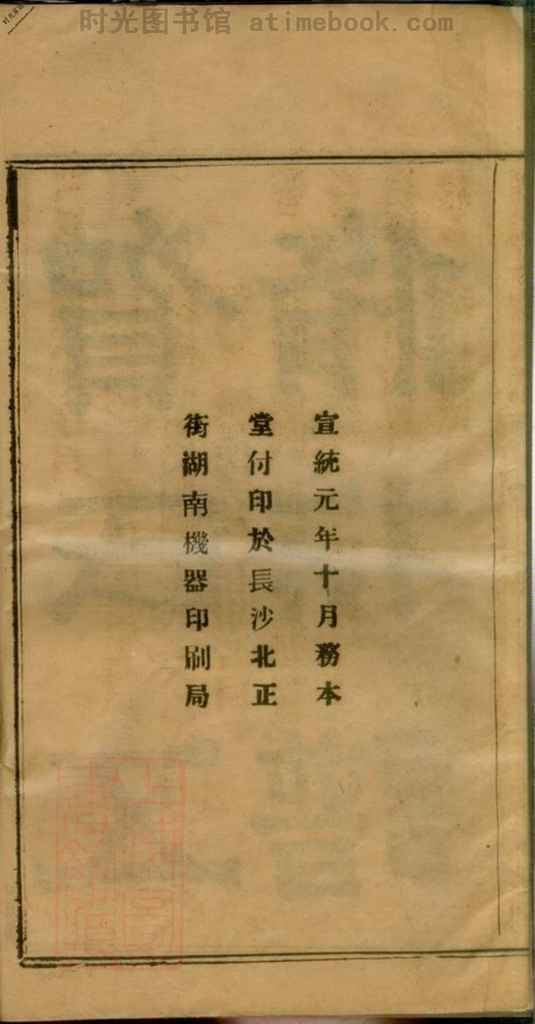 时光图书馆 atimebook.com
宣統元年十月務本
堂付印於長沙北正
街湖南機器印刷局